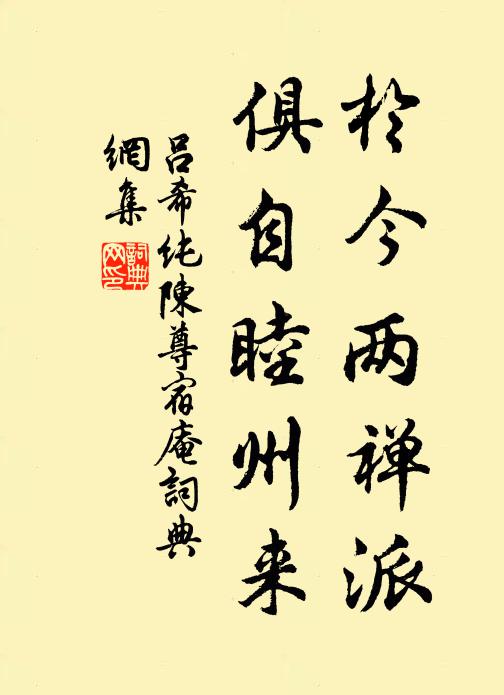 於今两禅派
俱自睦州来
吕希纯陳尊宿庵詞典
網集
詞典网印